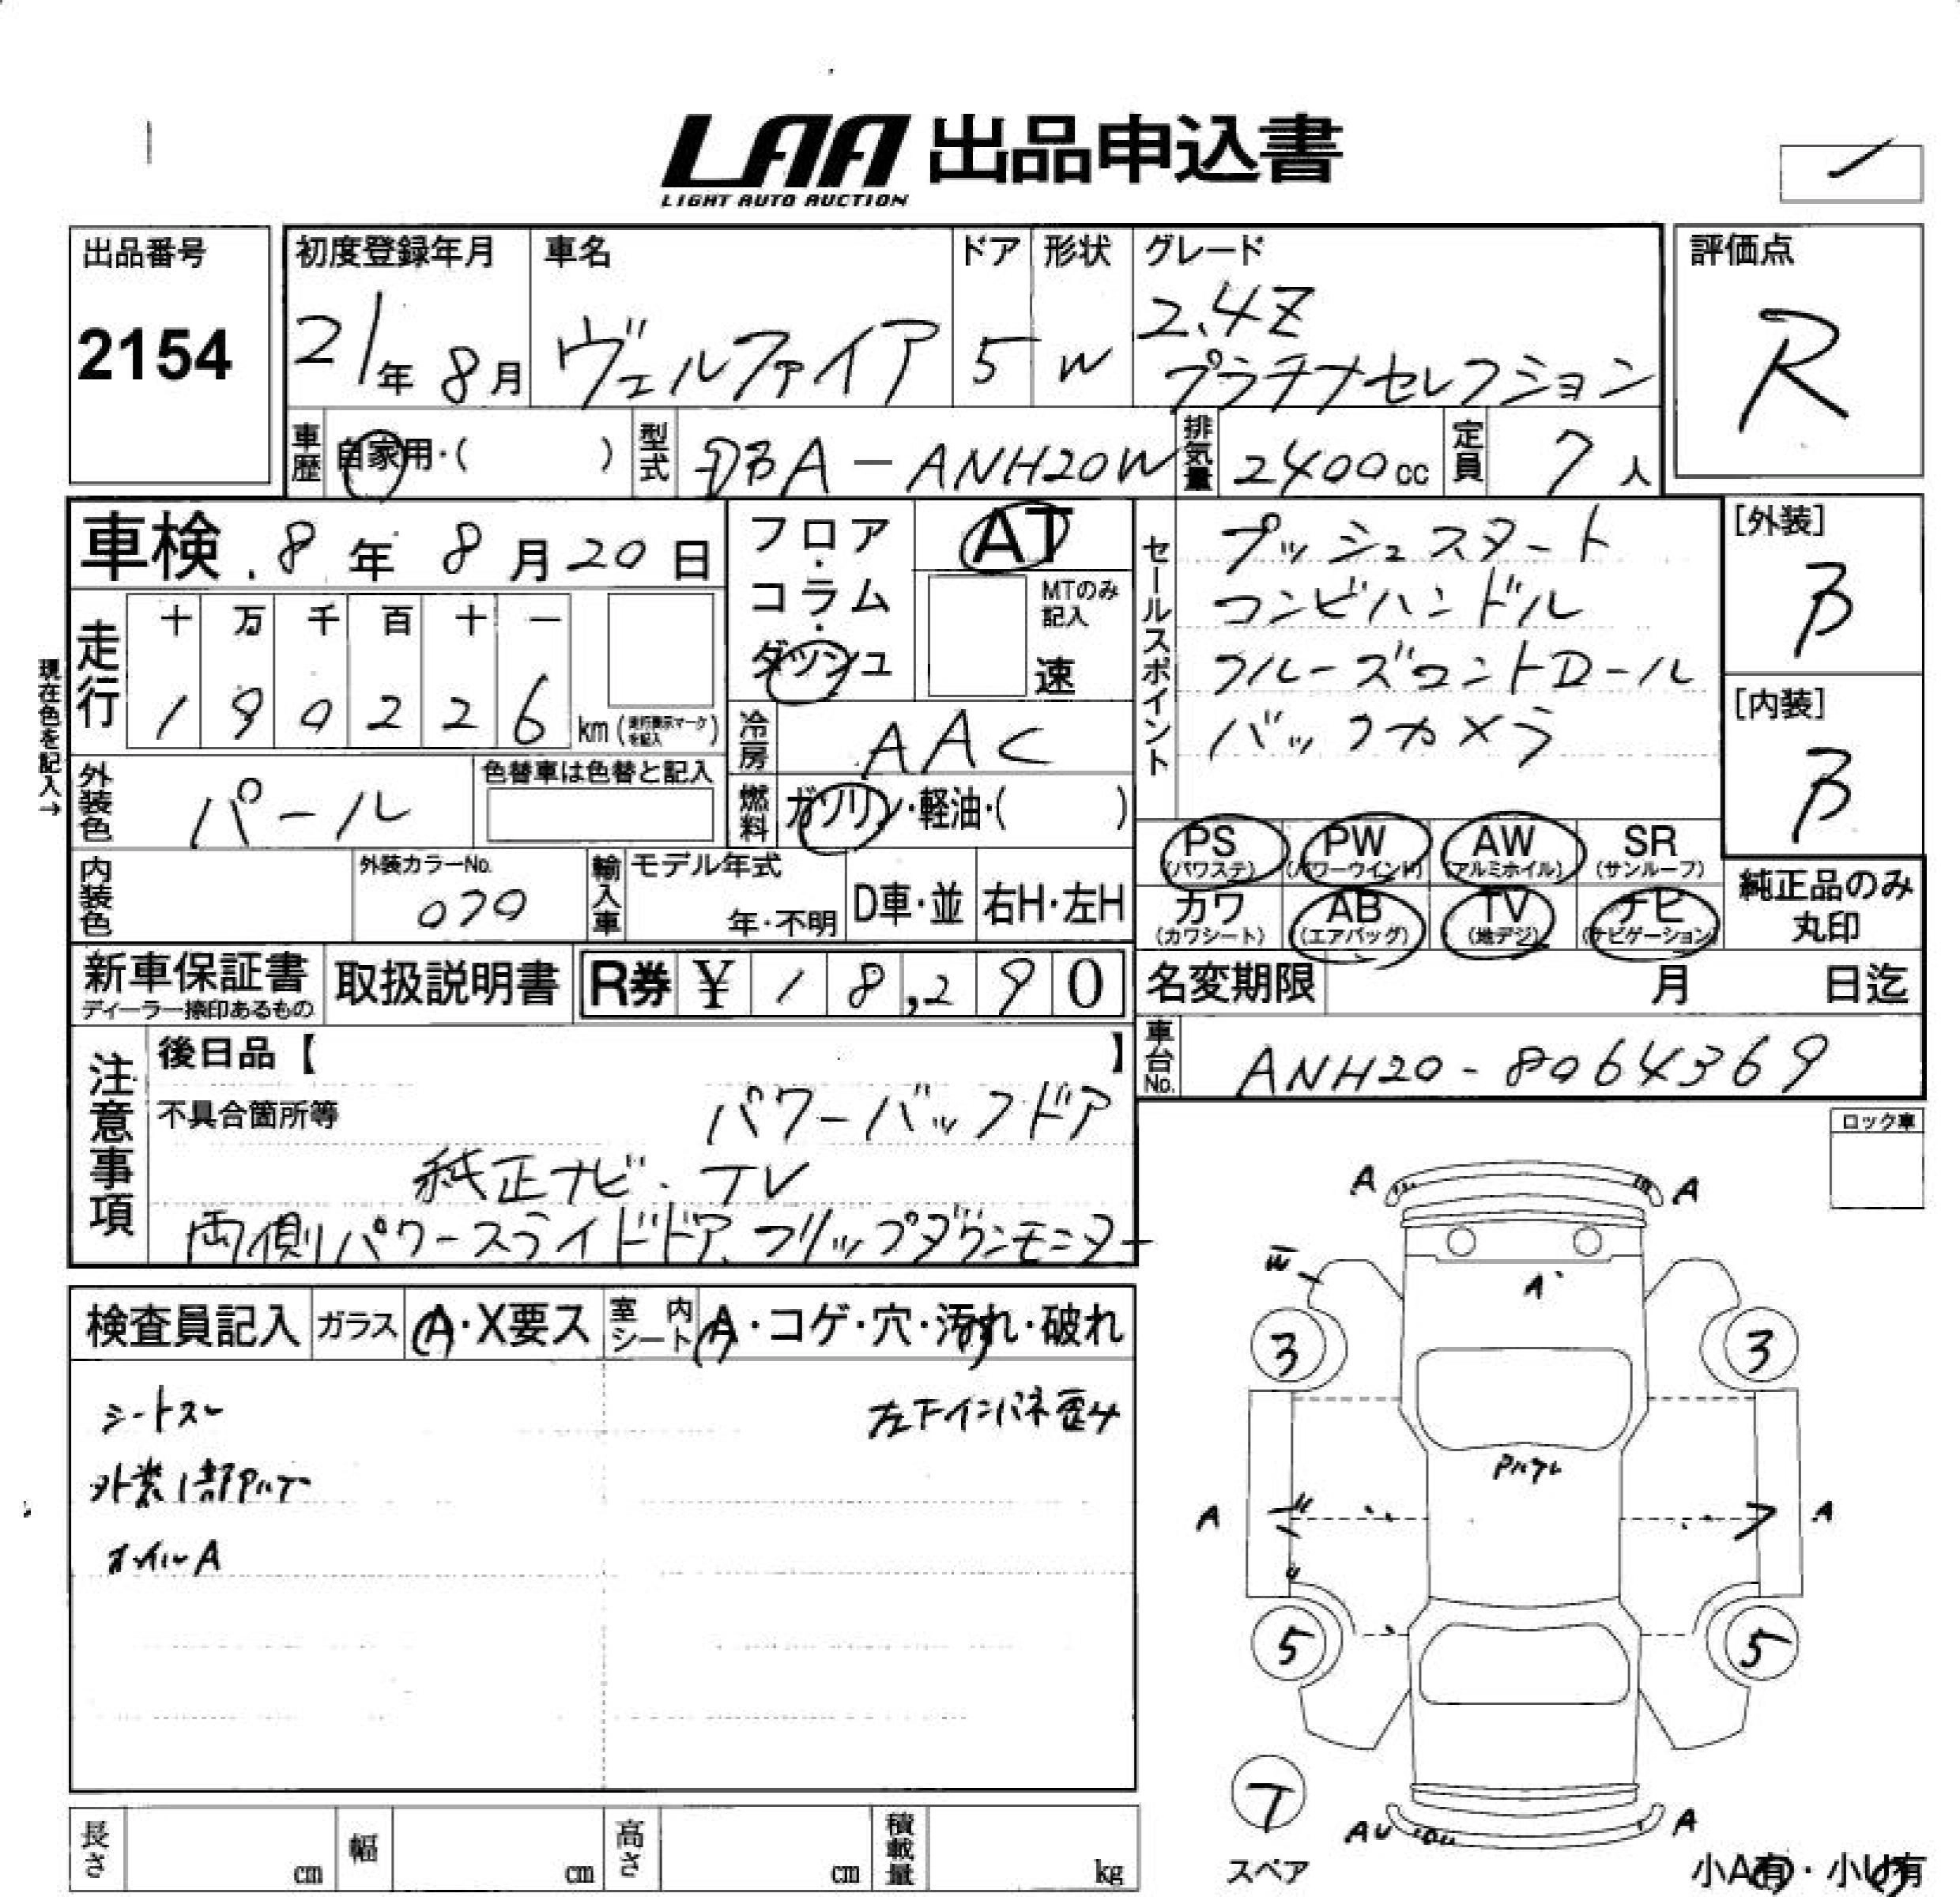 LAA 出品申込書
LIGHT AUTO AUCTION
出品番号
2154
初度登録年月
21年 8月
車名
ヴェルファイア
ドア
5
形状
W
グレード
2.4Z
プラチナセレクション
評価点
R
車歴
自家用・( )
型式
DBA-ANH20W
排気量
2400cc
定員
7人
車検 8年 8月 20日
フロア・コラム・ダッシュ
AT
MTのみ記入
速
走行
十 万 千 百 十 一
1 9 0 2 2 6 km
現在色を記入→
冷房
AAC
外装色
パール
色替車は色替と記入
燃料
ガソリン・軽油・( )
セールスポイント
プッシュスタート
コンビハンドル
クルーズコントロール
バックカメラ
[外装]
B
[内装]
B
内装色
外装カラーNo.
070
輸入車
モデル年式
年・不明
D車・並
右H・左H
PS (パワステ)
PW (パワーウインド)
AW (アルミホイル)
SR (サンルーフ)
カワ (カワシート)
AB (エアバッグ)
TV (地デジ)
ナビ (ナビゲーション)
純正品のみ丸印
新車保証書
ディーラー捺印あるもの
取扱説明書
R券 ¥ 18,290
名変期限 月 日迄
車台No.
ANH20-8064369
注意事項
後日品【 】
不具合箇所等
パワーバックドア
純正ナビ・TV
両側パワースライドドア.フリップダウンモニター
ロック車
検査員記入
ガラス
A・X要ス
室内シート
A・コゲ・穴・汚れ・破れ
シートスレ
左下インパネ歪み
外装1部
オイルA
A A
A
3 3
A A
5 5
7
スペア
AU A
小A有・小U有
長さ cm
幅 cm
高さ cm
積載量 kg